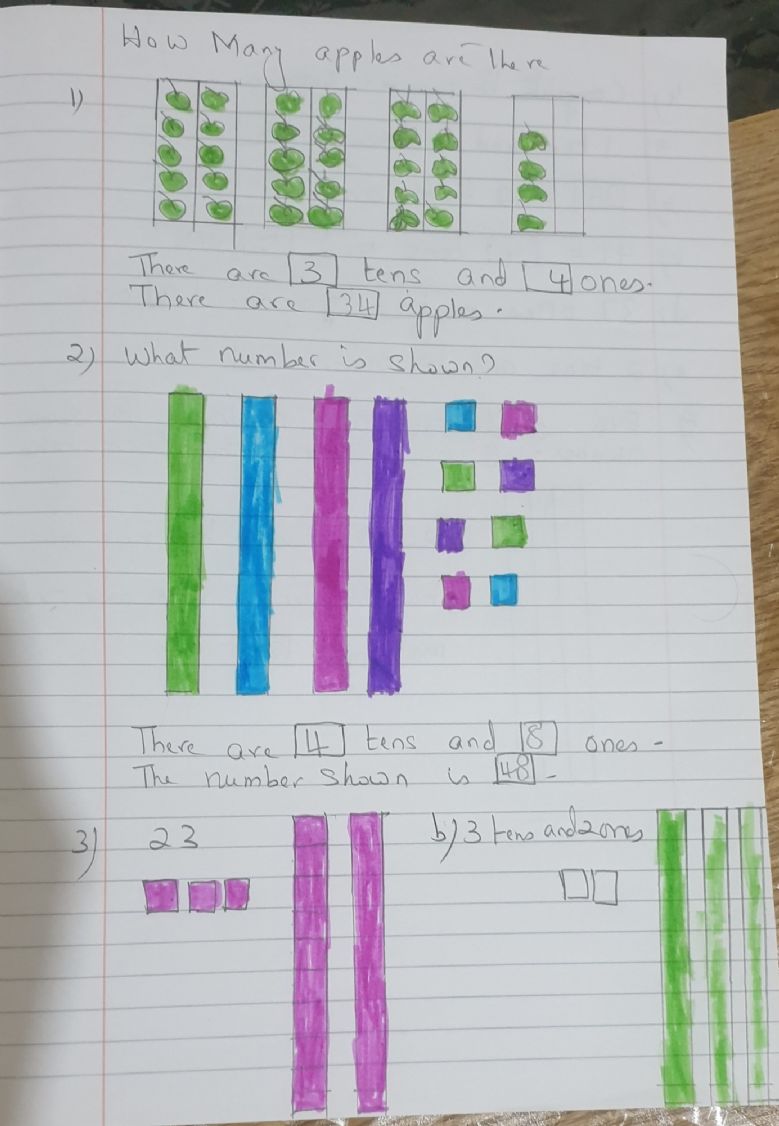 How Many apples are there
1)
There are 3 tens and 4 ones.
There are 34 apples.
2) What number is shown?
There are 4 tens and 8 ones -
The number shown is 48 -
3) 23
b) 3 tens and 2 ones